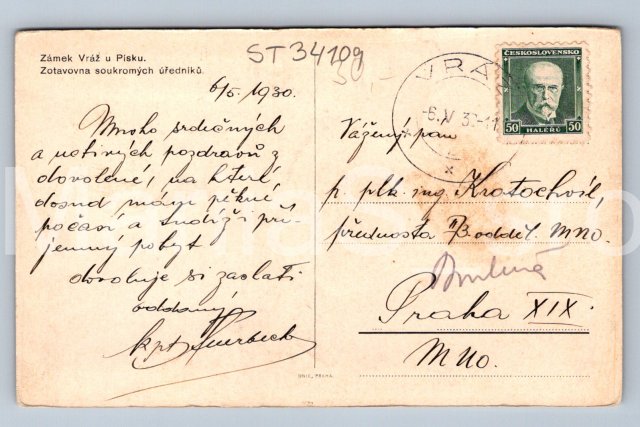 Zámek Vráž u Písku.
Zotavovna soukromých úředníků.
ST 34109
30,-
6/5. 1930.
Mnoho srdečných
a uctivých pozdravů z
dovolené, na které
dosud máme pěkné
počasí a tudíž i pří-
jemný pobyt
dovoluje si zaslati
oddaný
kpt
VRÁŽ
-6.V 30-11
ČESKOSLOVENSKO
50 HALÉŘŮ 50
Vážený pan
p. plk. ing Kratochvíl,
přednosta II/3 odděl. MNO.
Praha XIX.
MNO.
GRIC, PRAHA.